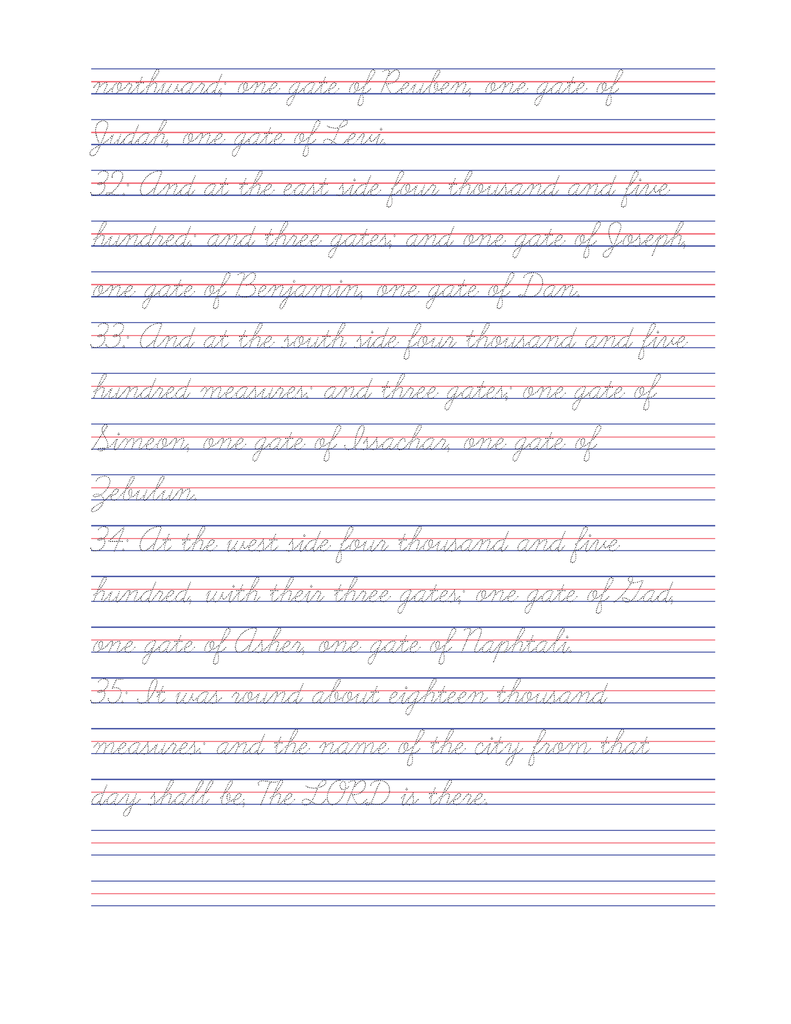 northward; one gate of Reuben, one gate of
Judah, one gate of Levi.
32: And at the east side four thousand and five
hundred: and three gates; and one gate of Joseph,
one gate of Benjamin, one gate of Dan.
33: And at the south side four thousand and five
hundred measures: and three gates; one gate of
Simeon, one gate of Issachar, one gate of
Zebulun.
34: At the west side four thousand and five
hundred, with their three gates; one gate of Gad,
one gate of Asher, one gate of Naphtali.
35: It was round about eighteen thousand
measures: and the name of the city from that
day shall be, The LORD is there.